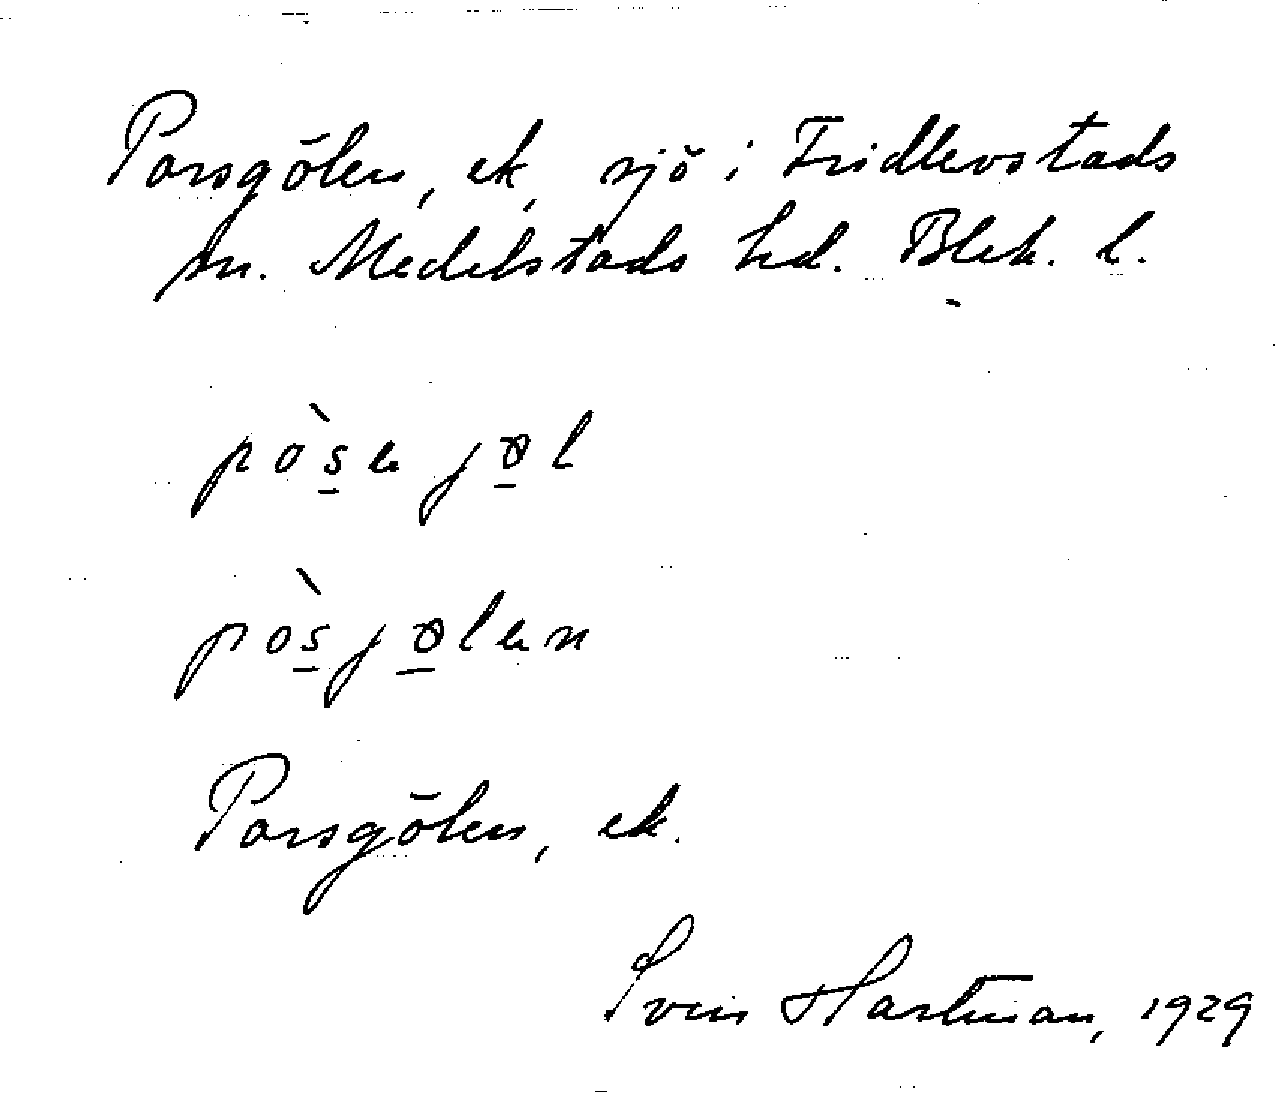 Porsgölen, ek, sjö i Fridlevstads
sn. Medelstads hd. Blek. l.
pòs̠ɐ jø̠l
pòs̠jø̠lɐn
Porsgölen, ek.
Sven Hartman, 1929